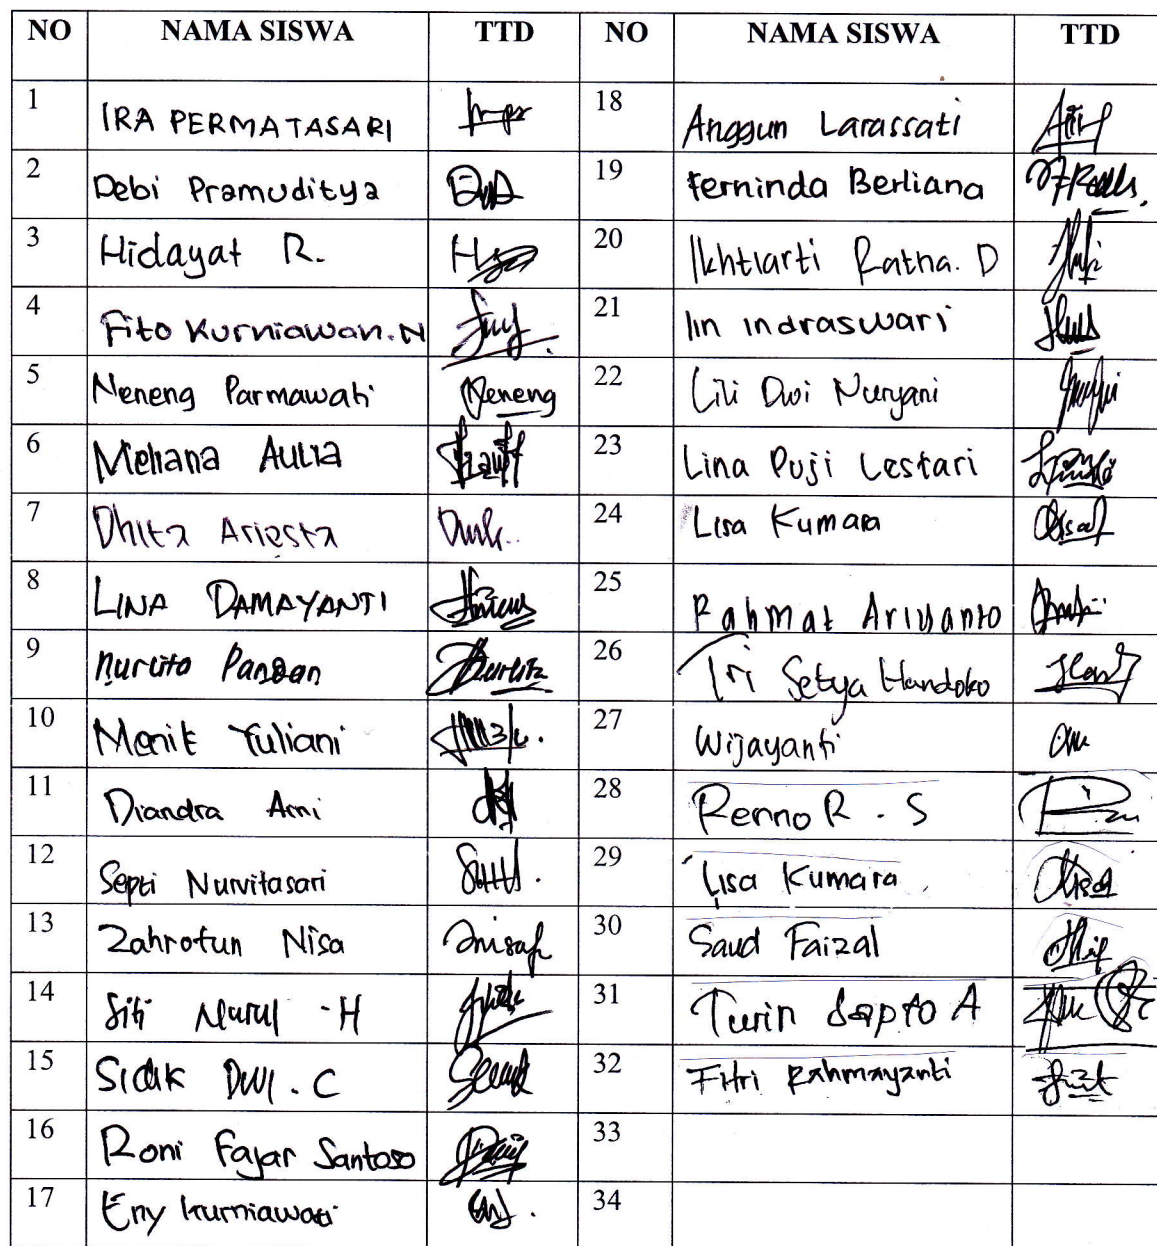 NO NAMA SISWA TTD NO NAMA SISWA TTD
1 IRA PERMATASARI 18 Anggun Larassati
2 Debi Pramuditya 19 Ferninda Berliana
3 Hidayat R. 20 Ikhtiarti Ratna. D
4 Fito Kurniawan.N 21 Iin Indraswari
5 Neneng Parmawati Neneng 22 Lili Dwi Nuryani
6 Meliana Aulia 23 Lina Puji Lestari
7 Dhita Ariesta 24 Lisa Kumara
8 LINA DAMAYANTI 25 Rahmat Ariyanto
9 Nurlita Pandan 26 Tri Setya Handoko
10 Menik Yuliani 27 Wijayanti
11 Diandra Arni 28 Renno R. S
12 Septi Nurvitasari 29 Lisa Kumara
13 Zahrotun Nisa 30 Saud Faizal
14 Siti Nurul .H 31 Turin Sapto A
15 Sidik DWI. C 32 Fitri Rahmayanti
16 Roni Fajar Santoso 33
17 Eny Kurniawati 34